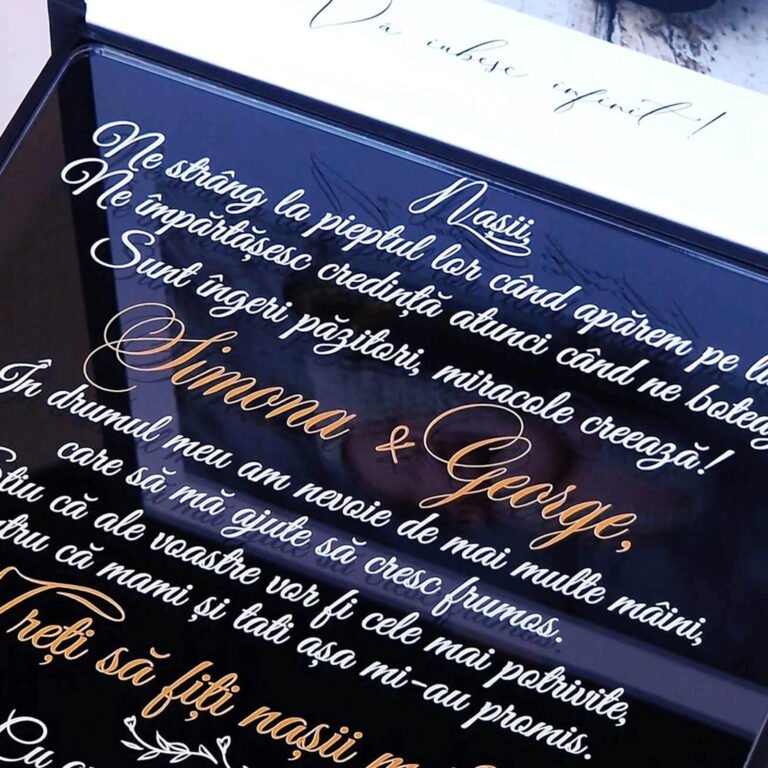 Vă iubesc infinit!
Nașii,
Ne strâng la pieptul lor când apărem pe
Ne împărtășesc credință atunci când ne
Sunt îngeri păzitori, miracole creează!
Simona & George,
În drumul meu am nevoie de mai multe mâini,
care să mă ajute să cresc frumos.
Știu că ale voastre vor fi cele mai potrivite,
că mami și tati așa mi-au promis.
să fiți nașii
Cu